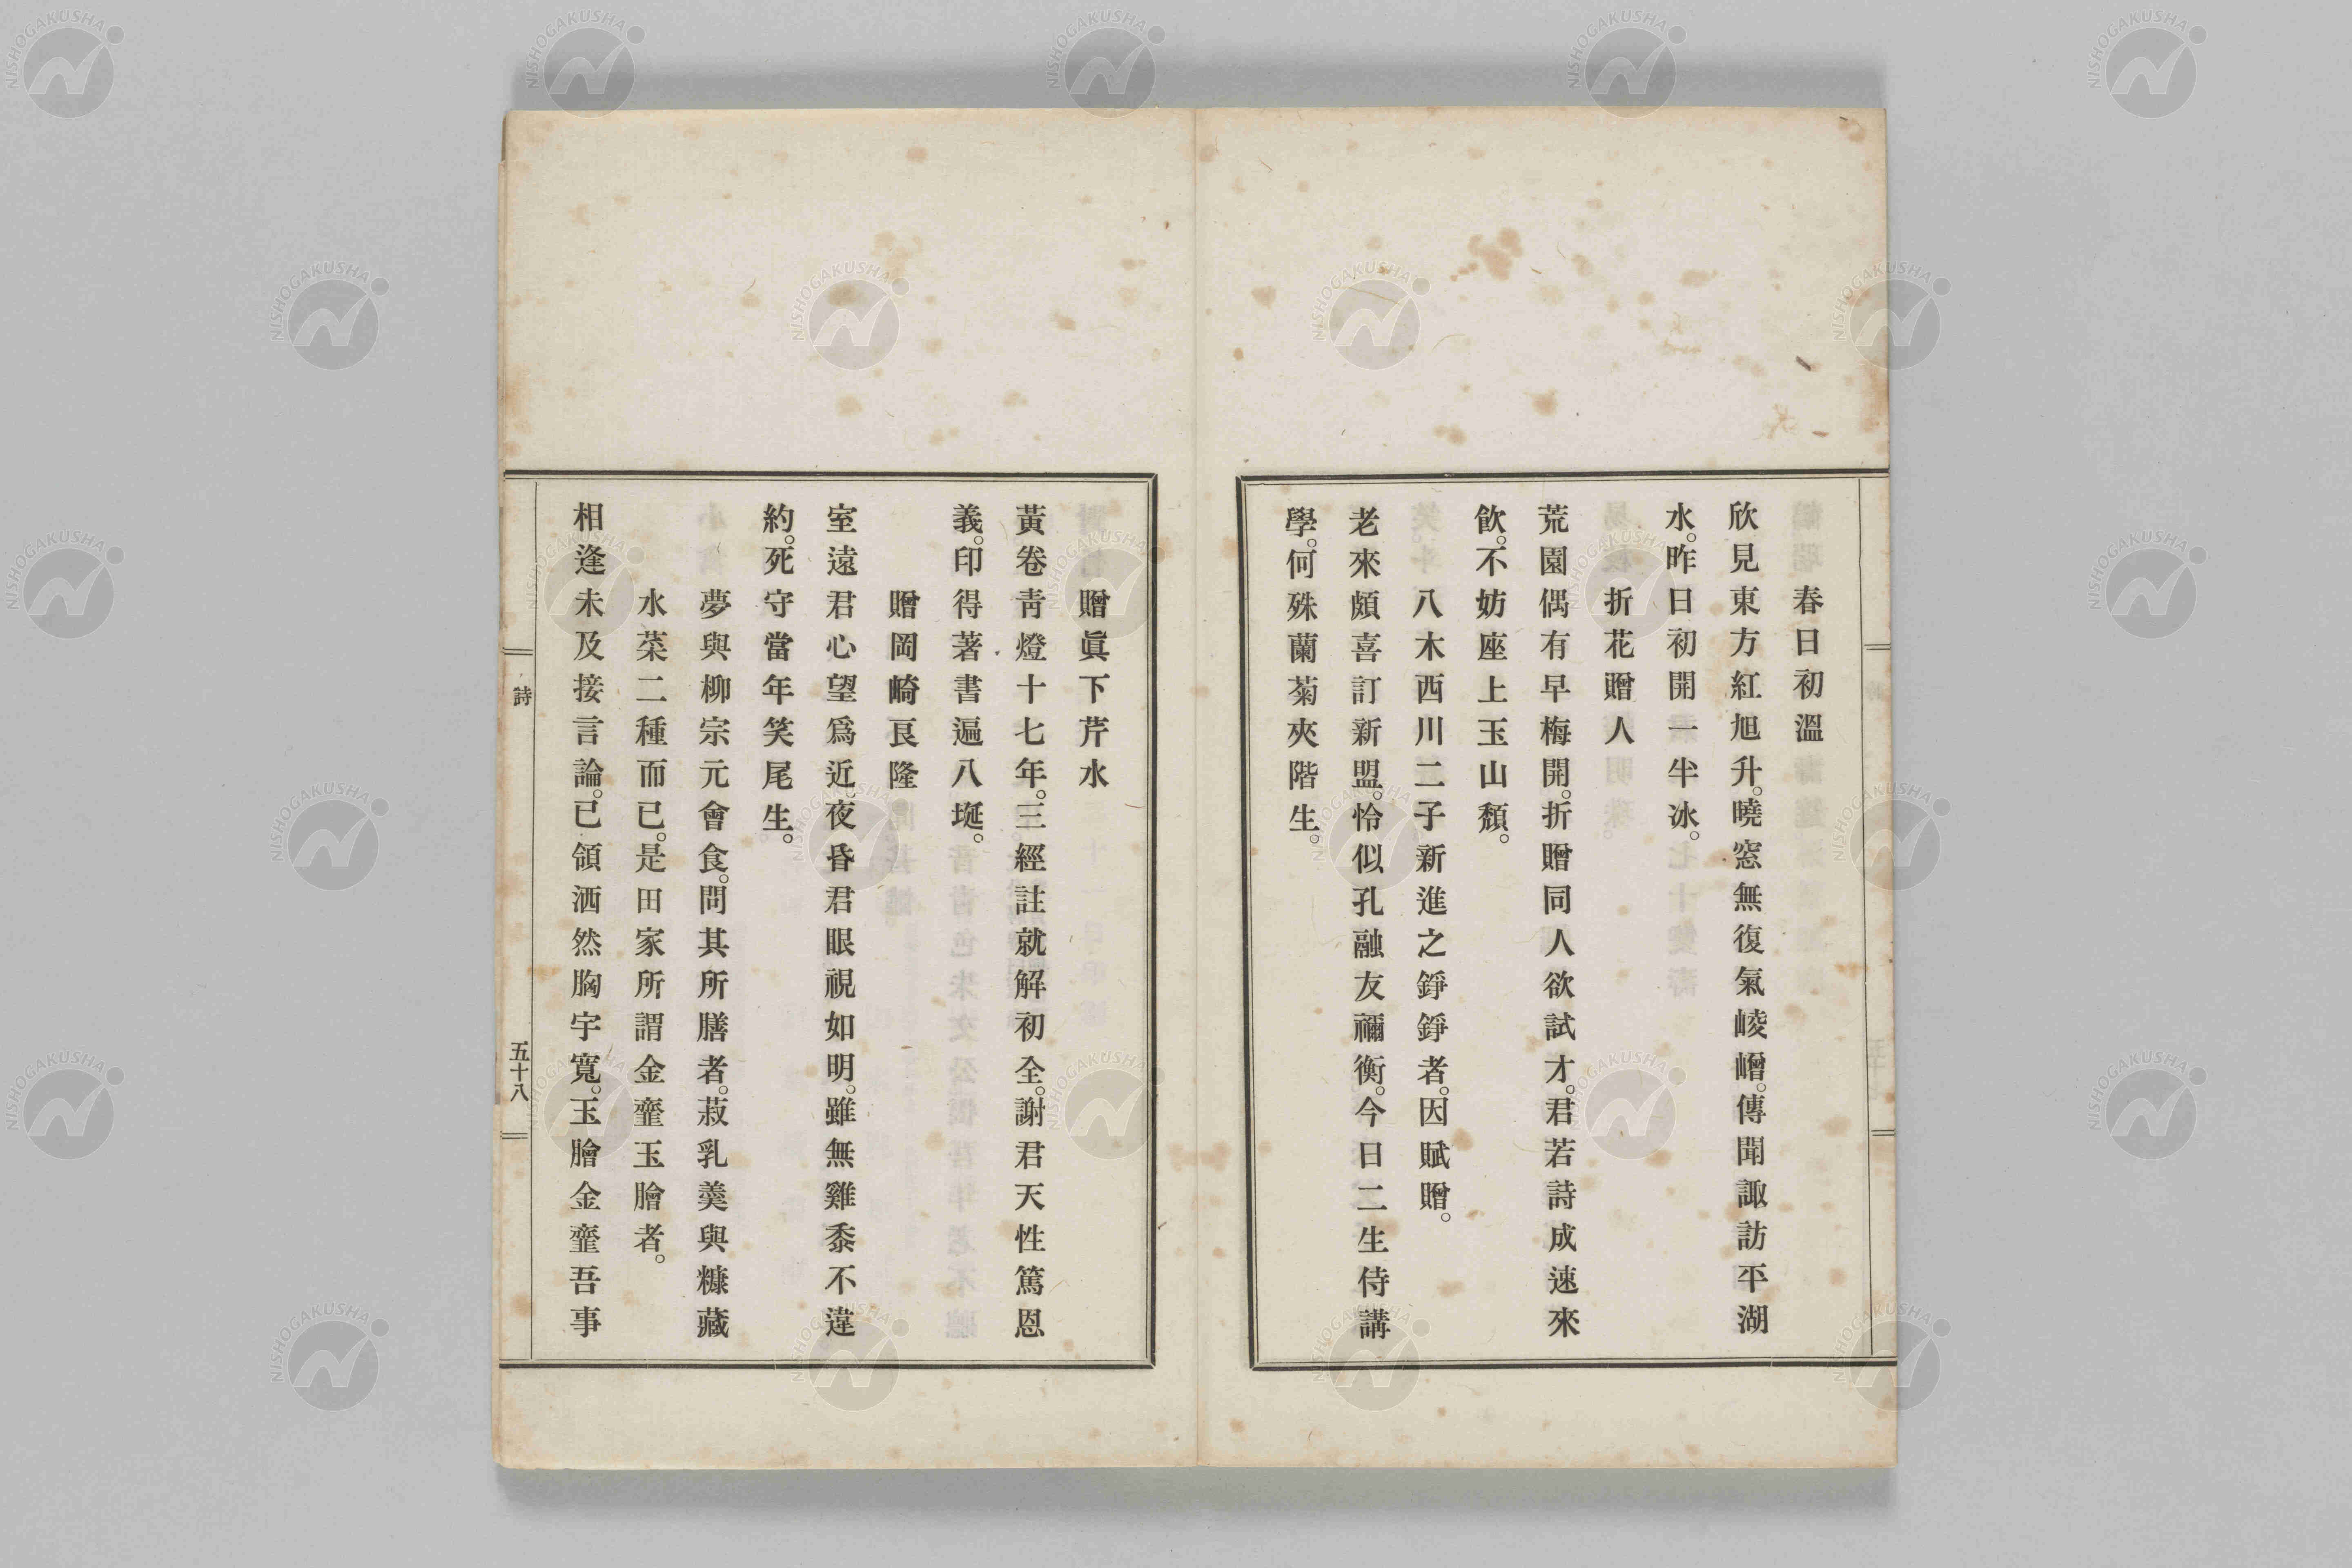 春日初溫
欣見東方紅旭升。曉窓無復氣崚嶒。傳聞諏訪平湖
水。昨日初開一半冰。
折花贈人
荒園偶有早梅開。折贈同人欲試才。君若詩成速來
飮。不妨座上玉山頽。
八木西川二子新進之錚錚者。因賦贈。
老來頗喜訂新盟。怜似孔融友禰衡。今日二生侍講
學。何殊蘭菊夾階生。
贈眞下芹水
黃卷靑燈十七年。三經註就解初全。謝君天性篤恩
義。印得著書遍八埏。
贈岡崎良隆
室遠君心望爲近。夜昏君眼視如明。雖無雞黍不違
約。死守當年笑尾生。
夢與柳宗元會食。問其所膳者。菽乳羹與糠藏
水菜二種而已。是田家所謂金虀玉膾者。
相逢未及接言論。已領洒然胸宇寬。玉膾金虀吾事
詩
五十八
NISHOGAKUSHA